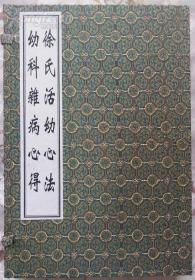 徐氏活幼心法
幼科雜病心得